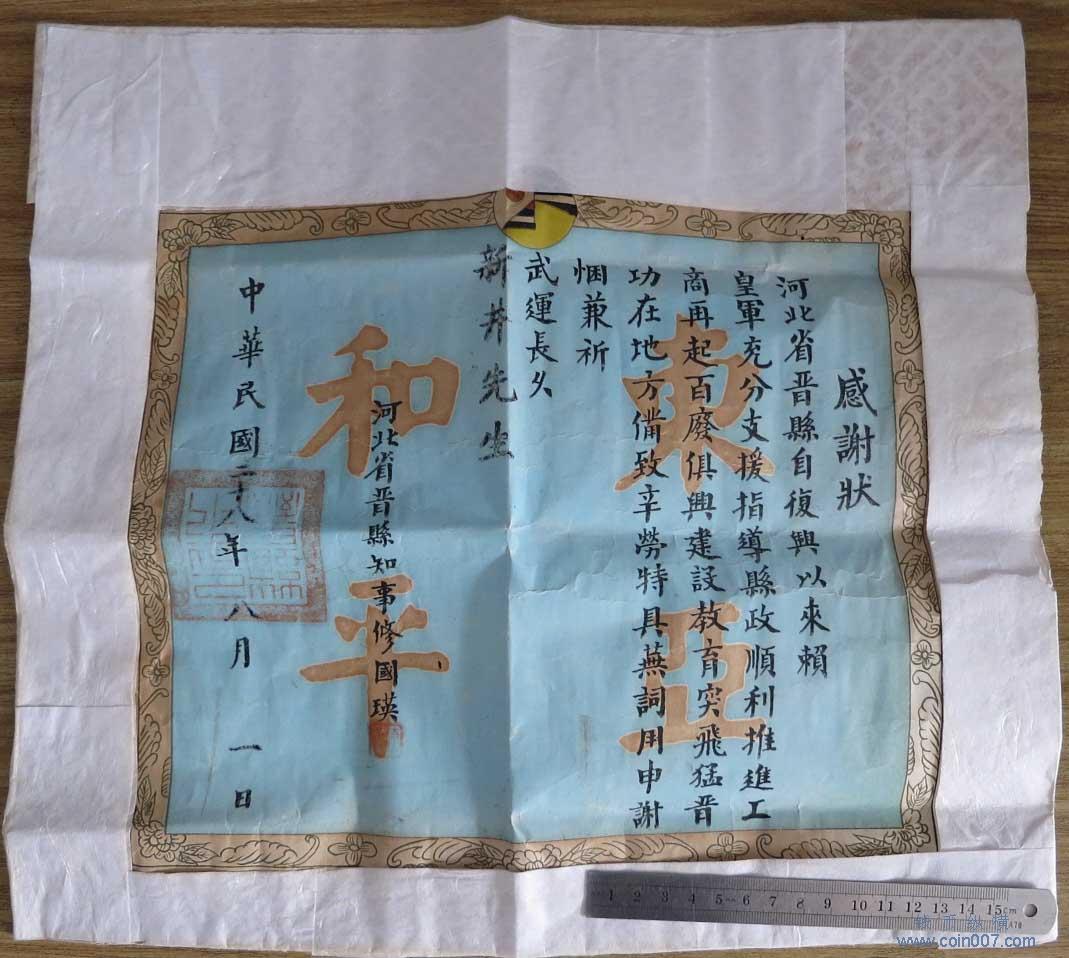 感謝狀
河北省晋縣自復興以來賴
皇軍充分支援指導縣政順利推進工
商再起百廢俱興建設教育突飛猛晋
功在地方備致辛勞特具蕪詞用申謝
悃兼祈
武運長久
新井先生
河北省晋縣知事修國瑛
中華民國二十八年八月一日
東亞
和平
1 2 3 4 5 6 7 8 9 10 11 12 13 14 15cm
錢币纵横
www.coin007.com